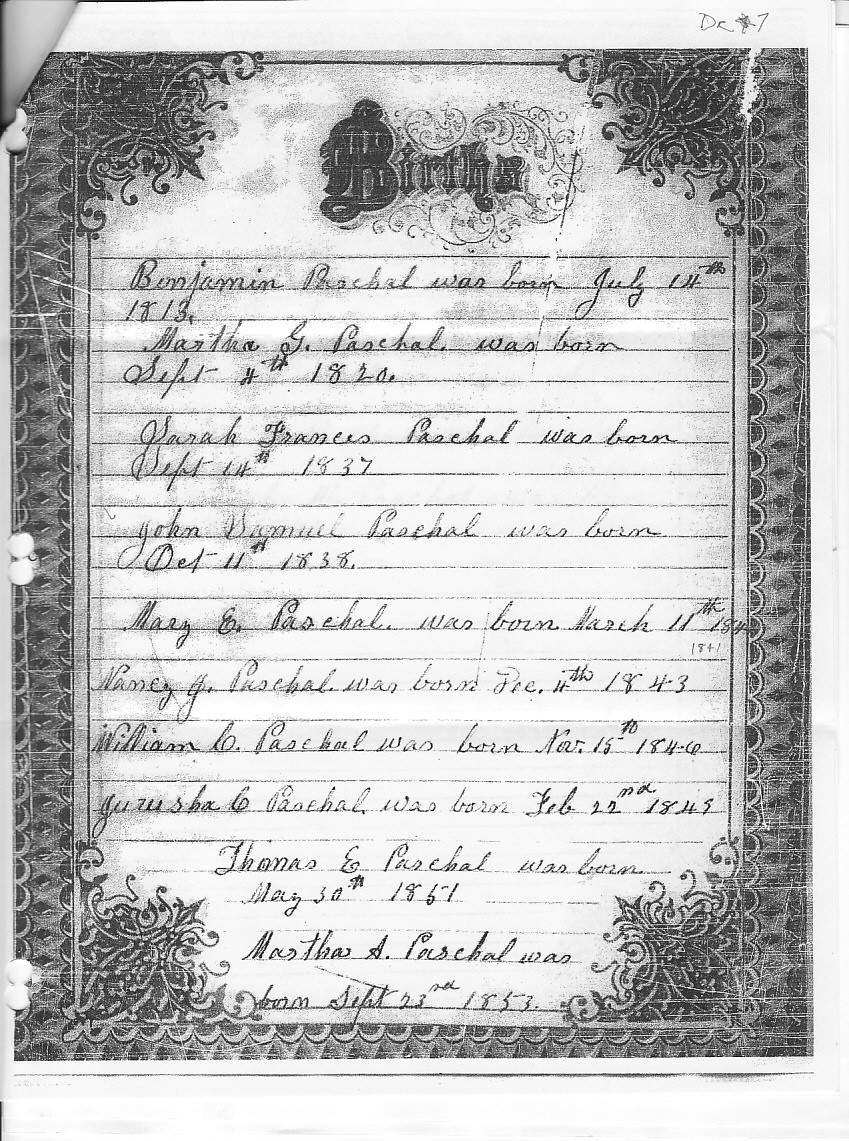 Dc #7
Births
Benjamin Paschal was born July 14th
1813.
Martha G. Paschal. was born
Sept 4th 1820.
Sarah Frances Paschal was born
Sept 14th 1837
John Samuel Paschal was born
Oct 11th 1838.
Mary E. Paschal. was born March 11th 184
1841
Nancy J. Paschal. was born Dec. 4th 1843
William C. Paschal was born Nov. 15th 1846
Jurusha C Paschal was born Feb 22nd 1849
Thomas E Paschal was born
May 30th 1851
Martha A. Paschal was
born Sept 23rd 1853.